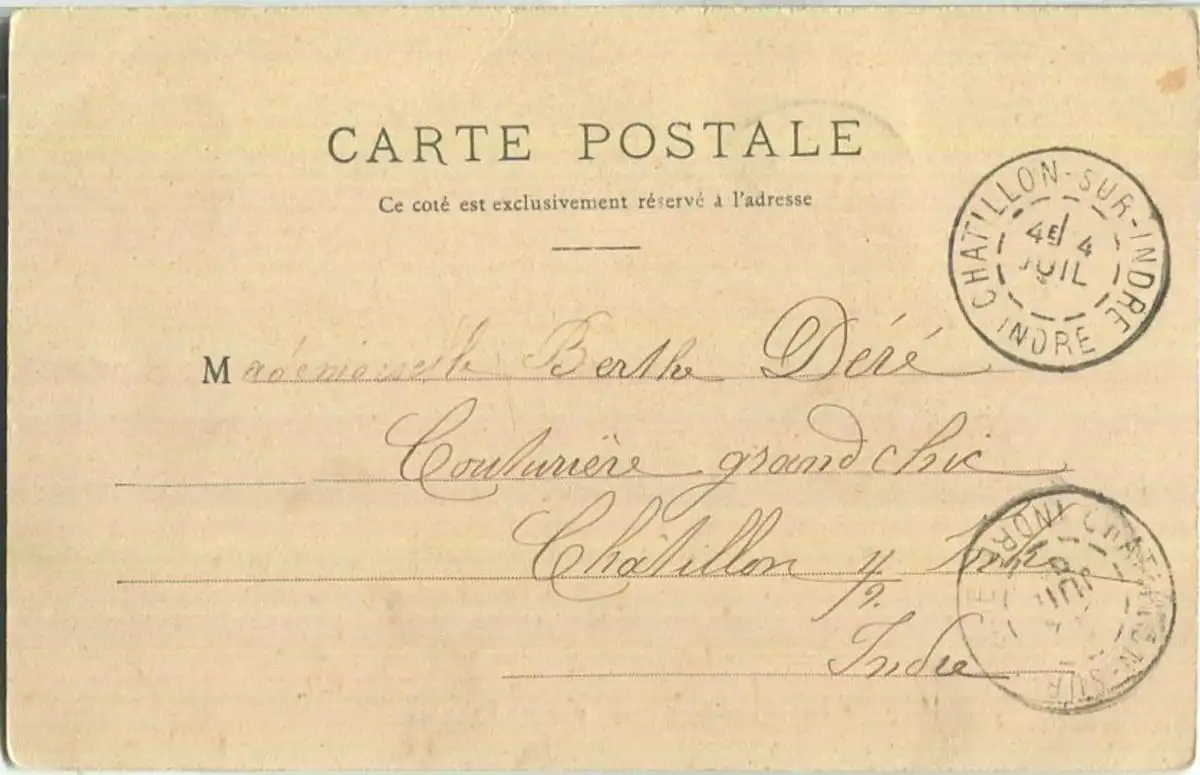 CARTE POSTALE
Ce coté est exclusivement réservé à l'adresse
CHATILLON-SUR-INDRE
4E/ 4
JUIL
INDRE
Mademoiselle Berthe Déré
Couturière grand chic
Châtillon s/
Indre
CHATILLON-SUR
INDRE